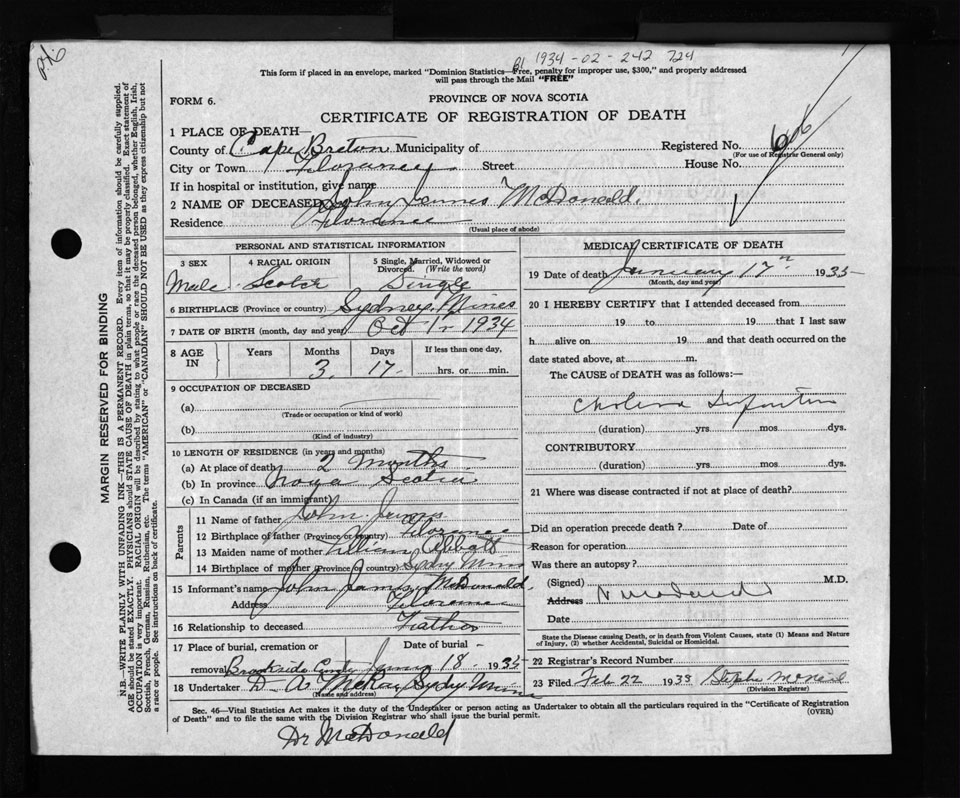 1934-02-242 724
This form if placed in an envelope, marked "Dominion Statistics—Free, penalty for improper use, $300," and properly addressed
will pass through the Mail "FREE"
FORM 6.
PROVINCE OF NOVA SCOTIA
CERTIFICATE OF REGISTRATION OF DEATH
1 PLACE OF DEATH—
County of Cape Breton Municipality of Registered No. 606
(For use of Registrar General only)
City or Town Florence Street House No.
If in hospital or institution, give name
2 NAME OF DECEASED John James McDonald.
Residence Florence
(Usual place of abode)
PERSONAL AND STATISTICAL INFORMATION
3 SEX 4 RACIAL ORIGIN 5 Single, Married, Widowed or Divorced. (Write the word)
Male Scotch Single
6 BIRTHPLACE (Province or country) Sydney Mines
7 DATE OF BIRTH (month, day and year) Oct 1 1934
8 AGE IN Years Months Days If less than one day,
3 17 hrs. or min.
9 OCCUPATION OF DECEASED
(a)
(Trade or occupation or kind of work)
(b)
(Kind of industry)
10 LENGTH OF RESIDENCE (in years and months)
(a) At place of death 2 Months
(b) In province Nova Scotia
(c) In Canada (if an immigrant)
Parents
11 Name of father John James
12 Birthplace of father (Province or country) Florence
13 Maiden name of mother Lillian Abbott
14 Birthplace of mother (Province or country) Sydney Mines
15 Informant's name John James McDonald.
Address Florence
16 Relationship to deceased Father
17 Place of burial, cremation or Date of burial -
removal Brookside 18 - 1935
18 Undertaker D. A. McKay Sydney Mines
(Name and address)
MEDICAL CERTIFICATE OF DEATH
19 Date of death January 17 1935
(Month, day and year)
20 I HEREBY CERTIFY that I attended deceased from
19 to 19 that I last saw
h alive on 19 and that death occurred on the
date stated above, at m.
The CAUSE of DEATH was as follows:—
Cholera Infantum
(duration) yrs. mos. dys.
CONTRIBUTORY
(duration) yrs. mos. dys.
21 Where was disease contracted if not at place of death?
Did an operation precede death? Date of
Reason for operation
Was there an autopsy?
(Signed) M.D.
Address
Date
State the Disease causing Death, or in death from Violent Causes, state (1) Means and Nature
of Injury, (2) whether Accidental, Suicidal or Homicidal.
22 Registrar's Record Number
23 Filed Feb 22 1935
(Division Registrar)
Sec. 46—Vital Statistics Act makes it the duty of the Undertaker or person acting as Undertaker to obtain all the particulars required in the "Certificate of Registration
of Death" and to file the same with the Division Registrar who shall issue the burial permit. (OVER)
Dr McDonald
MARGIN RESERVED FOR BINDING
N.B.—WRITE PLAINLY WITH UNFADING INK—THIS IS A PERMANENT RECORD. Every item of information should be carefully supplied.
AGE should be stated EXACTLY. PHYSICIANS should STATE CAUSE OF DEATH in plain terms, so that it may be properly classified. Exact statement of
OCCUPATION is very important. RACIAL ORIGIN will be described by stating to what people or race the deceased person belonged, whether English, Irish,
Scottish, French, German, Russian, Ruthenian, etc. The terms "AMERICAN" or "CANADIAN" SHOULD NOT BE USED as they express citizenship but not
a race or people. See instructions on back of certificate.